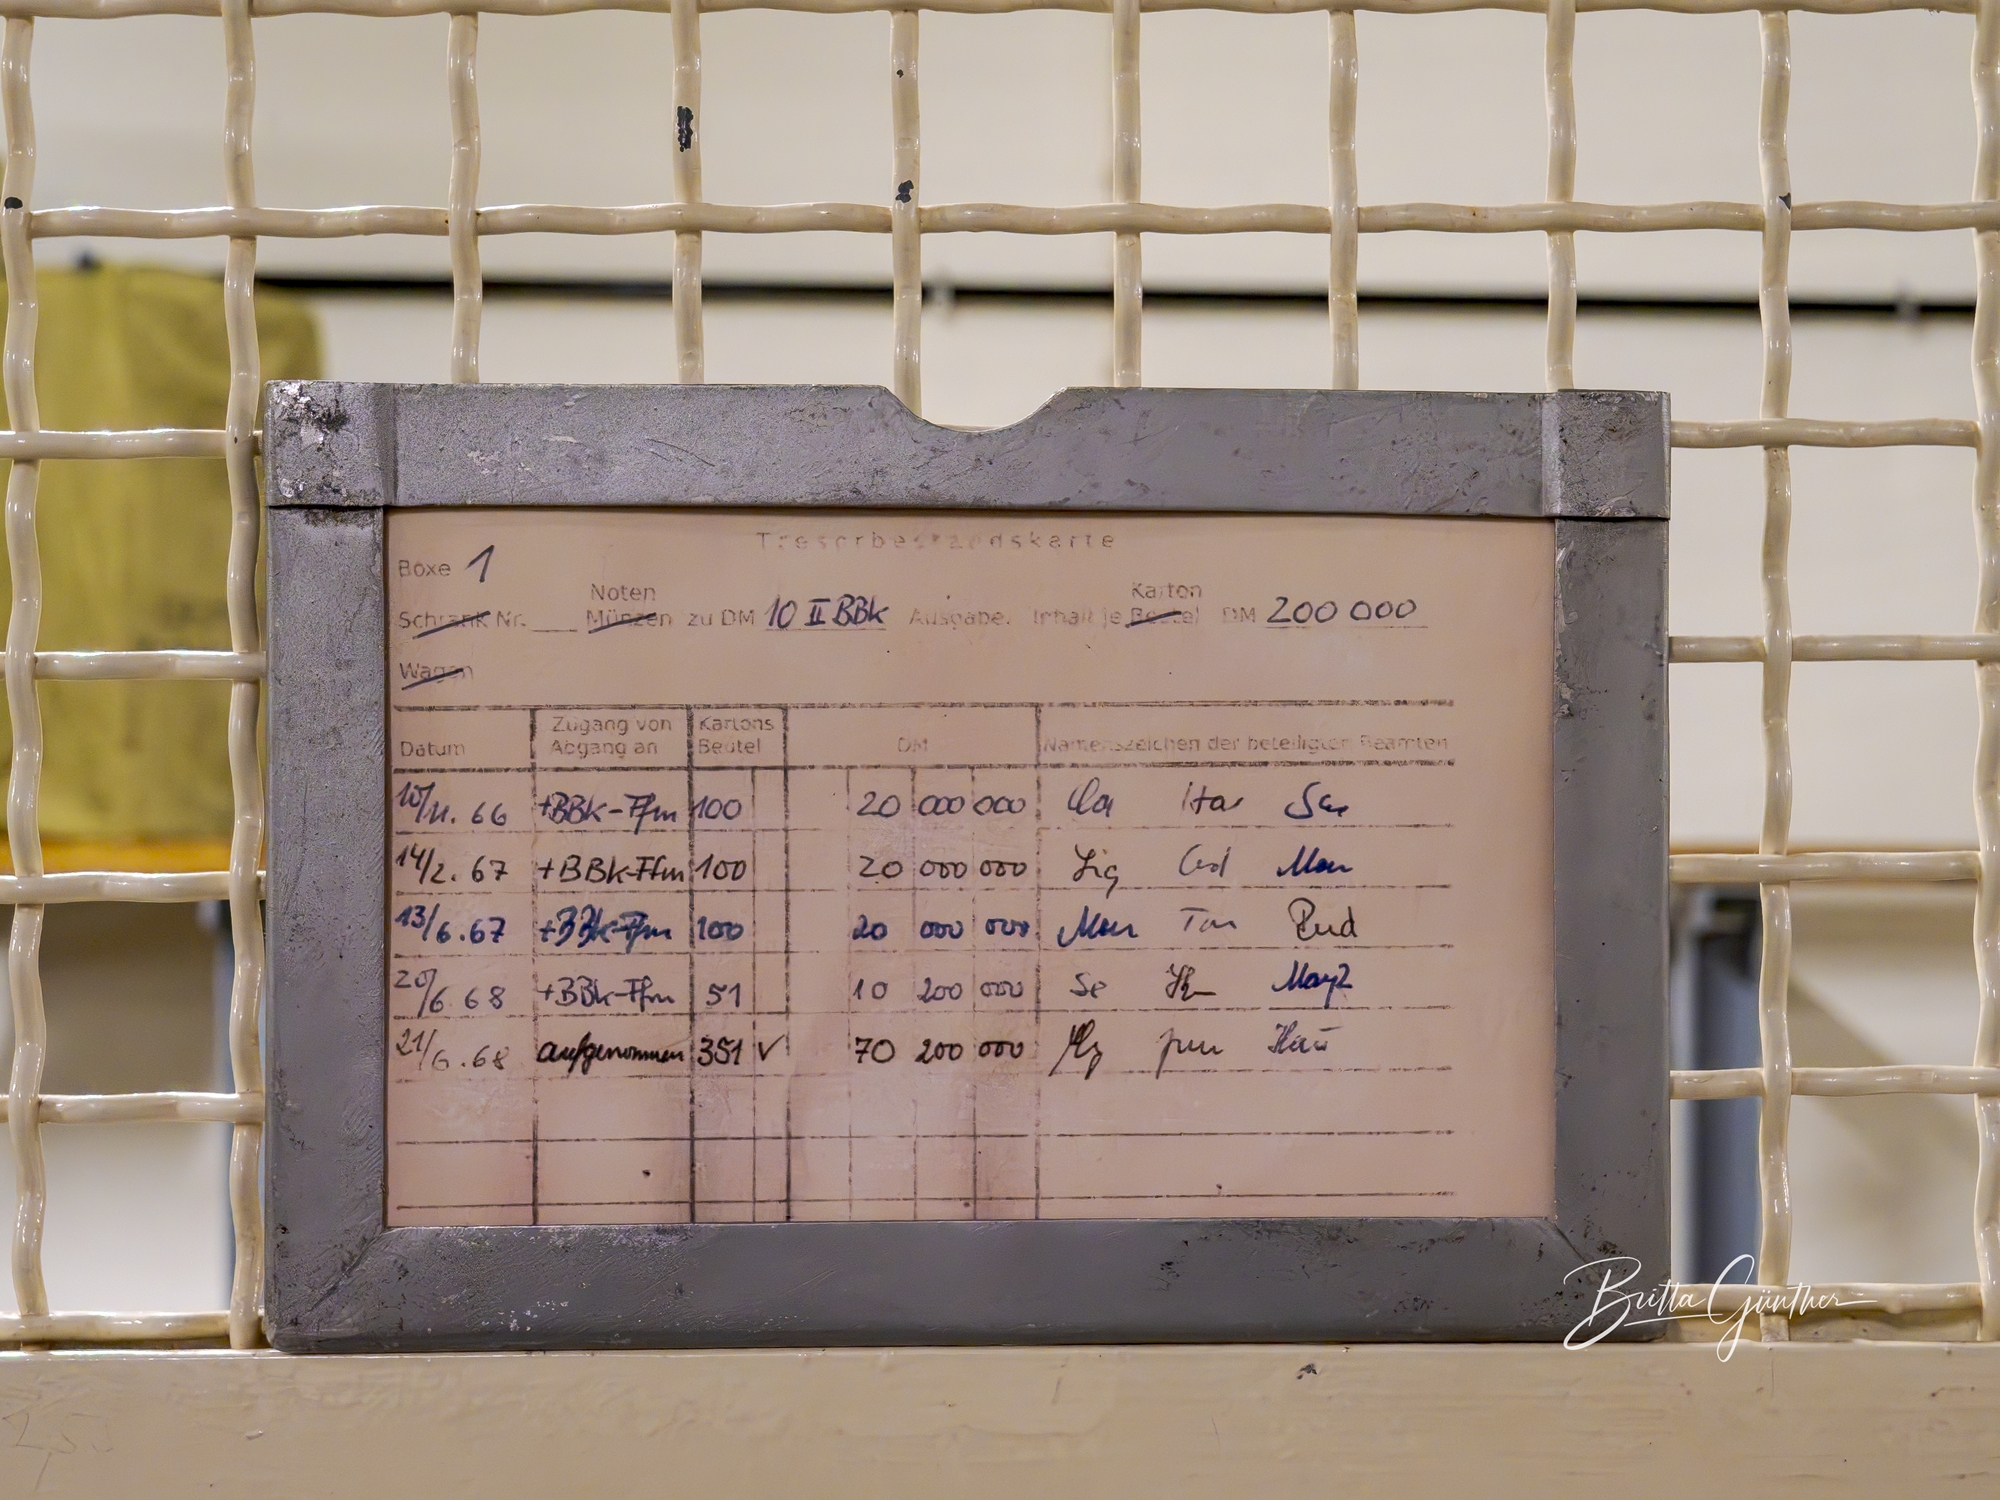 Tresorbestandskarte
Boxe 1
Noten Karton
Schrank Nr. Münzen zu DM 10 II BBk Ausgabe. Inhalt je Beutel DM 200 000
Wagen
Zugang von Kartons
Datum Abgang an Beutel DM Namenszeichen der beteiligten Beamten
10/11. 66 +BBk-Ffm 100 20 000 000
14/2. 67 +BBk-Ffm 100 20 000 000
13/6.67 +BBk-Ffm 100 20 000 000
20/6 68 +BBk-Ffm 51 10 200 000 Se
21/6.68 aufgenommen 351 √ 70 200 000
Britta Günther